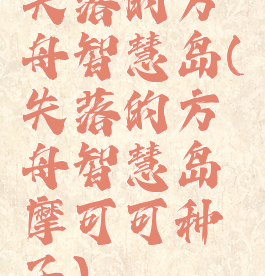 失落的方
舟智慧岛(
失落的方
舟智慧岛
摩可可种
子)